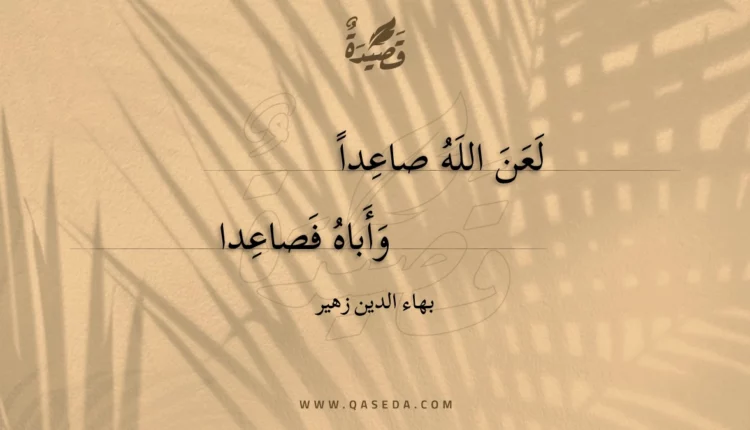 قَصِيْدَةٌ
لَعَنَ اللَهُ صاعِداً
وَأَباهُ فَصاعِدا
بهاء الدين زهير
WWW.QASEDA.COM